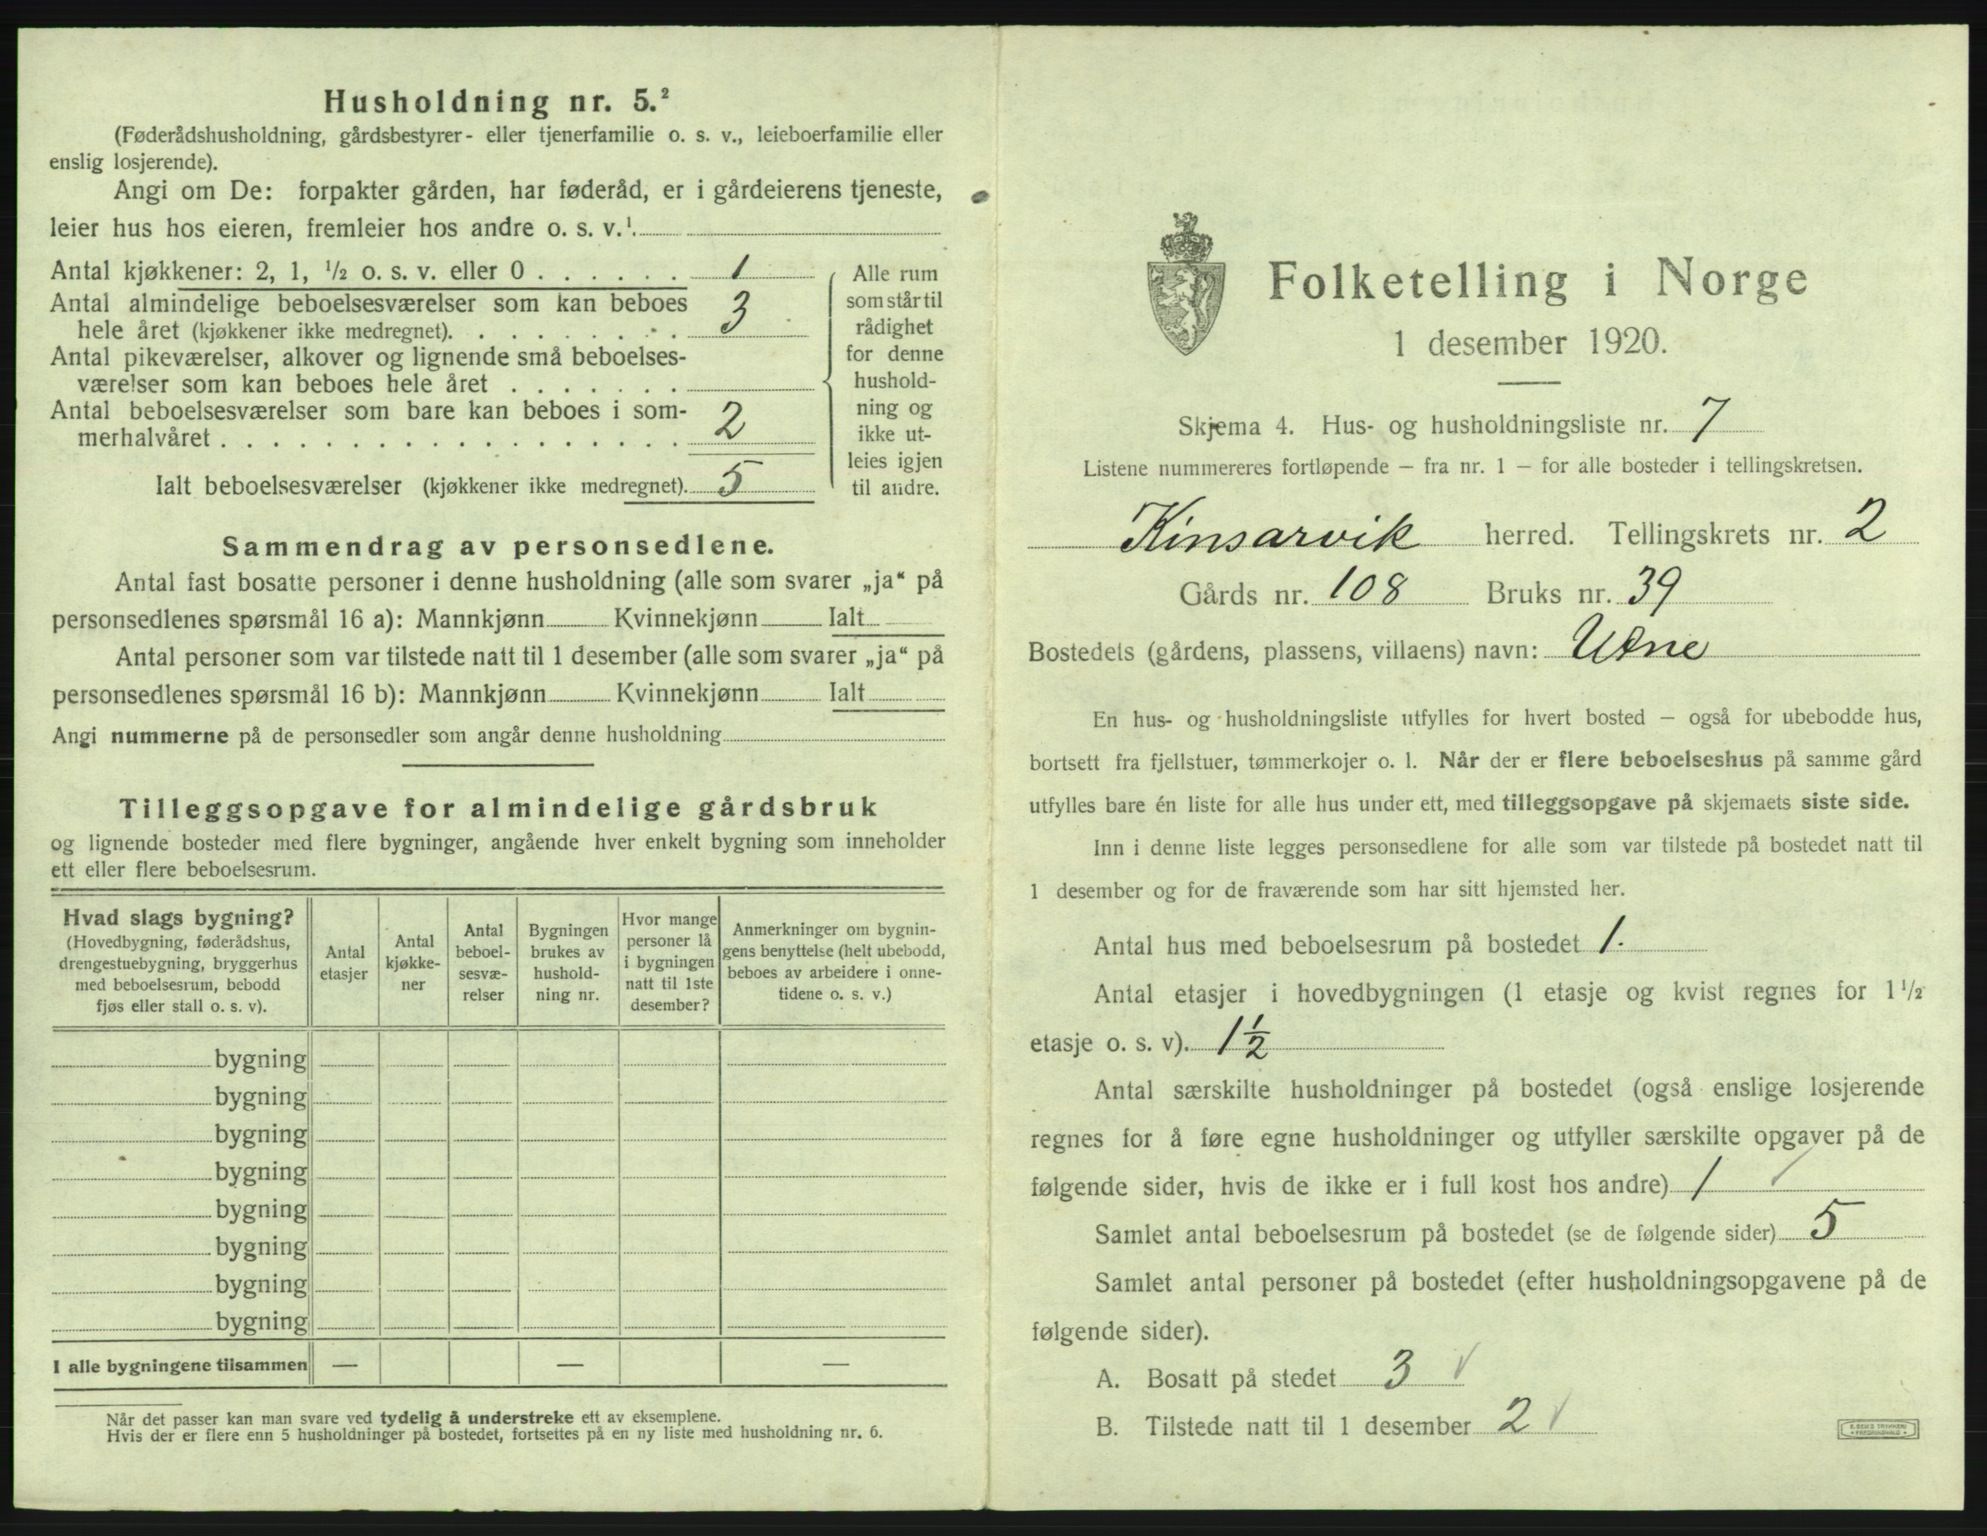 Husholdning nr. 5.²
(Føderådshusholdning, gårdsbestyrer- eller tjenerfamilie o. s. v., leieboerfamilie eller
enslig losjerende).
Angi om De: forpakter gården, har føderåd, er i gårdeierens tjeneste,
leier hus hos eieren, fremleier hos andre o. s. v.¹
Antal kjøkkener: 2, 1, ½ o. s. v. eller 0 . . . . . . 1
Antal almindelige beboelsesværelser som kan beboes
hele året (kjøkkener ikke medregnet). . . . . . . . . 3
Antal pikeværelser, alkover og lignende små beboelses-
værelser som kan beboes hele året . . . . . . .
Antal beboelsesværelser som bare kan beboes i som-
merhalvåret . . . . . . . . . . . . . . . . . . 2
Ialt beboelsesværelser (kjøkkener ikke medregnet). 5
Alle rum
som står til
rådighet
for denne
hushold-
ning og
ikke ut-
leies igjen
til andre.
Sammendrag av personsedlene.
Antal fast bosatte personer i denne husholdning (alle som svarer „ja“ på
personsedlenes spørsmål 16 a): Mannkjønn Kvinnekjønn Ialt
Antal personer som var tilstede natt til 1 desember (alle som svarer „ja“ på
personsedlenes spørsmål 16 b): Mannkjønn Kvinnekjønn Ialt
Angi nummerne på de personsedler som angår denne husholdning
Tilleggsopgave for almindelige gårdsbruk
og lignende bosteder med flere bygninger, angående hver enkelt bygning som inneholder
ett eller flere beboelsesrum.
Hvad slags bygning?
(Hovedbygning, føderådshus,
drengestuebygning, bryggerhus
med beboelsesrum, bebodd
fjøs eller stall o. s. v).
Antal
etasjer
Antal
kjøkke-
ner
Antal
beboel-
sesvæ-
relser
Bygningen
brukes av
hushold-
ning nr.
Hvor mange
personer lå
i bygningen
natt til 1ste
desember?
Anmerkninger om bygnin-
gens benyttelse (helt ubebodd,
beboes av arbeidere i onne-
tidene o. s. v.)
bygning
bygning
bygning
bygning
bygning
bygning
bygning
bygning
I alle bygningene tilsammen — — —
Når det passer kan man svare ved tydelig å understreke ett av eksemplene.
Hvis der er flere enn 5 husholdninger på bostedet, fortsettes på en ny liste med husholdning nr. 6.
Folketelling i Norge
1 desember 1920.
Skjema 4. Hus- og husholdningsliste nr. 7
Listene nummereres fortløpende — fra nr. 1 — for alle bosteder i tellingskretsen.
Kinsarvik herred. Tellingskrets nr. 2
Gårds nr. 108 Bruks nr. 39
Bostedets (gårdens, plassens, villaens) navn: Utne
En hus- og husholdningsliste utfylles for hvert bosted — også for ubebodde hus,
bortsett fra fjellstuer, tømmerkojer o. l. Når der er flere beboelseshus på samme gård
utfylles bare én liste for alle hus under ett, med tilleggsopgave på skjemaets siste side.
Inn i denne liste legges personsedlene for alle som var tilstede på bostedet natt til
1 desember og for de fraværende som har sitt hjemsted her.
Antal hus med beboelsesrum på bostedet 1.
Antal etasjer i hovedbygningen (1 etasje og kvist regnes for 1½
etasje o. s. v). 1½
Antal særskilte husholdninger på bostedet (også enslige losjerende
regnes for å føre egne husholdninger og utfyller særskilte opgaver på de
følgende sider, hvis de ikke er i full kost hos andre) 1
Samlet antal beboelsesrum på bostedet (se de følgende sider) 5
Samlet antal personer på bostedet (efter husholdningsopgavene på de
følgende sider).
A. Bosatt på stedet 3 √
B. Tilstede natt til 1 desember 2 √